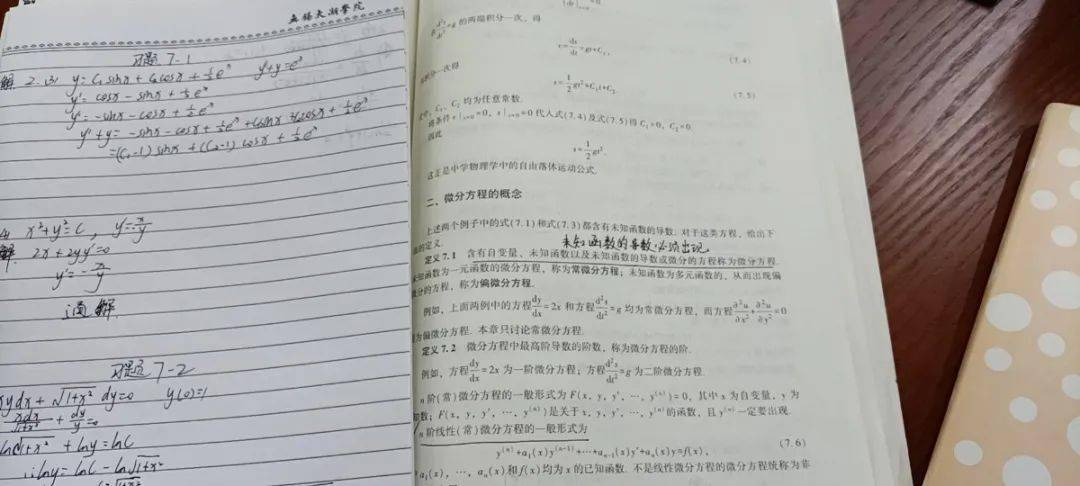 无锡太湖学院
习题 7-1
解 2. (3) y = C₁sinx + C₂cosx + ½eˣ y''+y=eˣ
y' = cosx - sinx + ½eˣ
y'' = -sinx - cosx + ½eˣ
y''+y = -sinx - cosx + ½eˣ + C₁sinx + C₂cosx + ½eˣ
=(C₁-1) sinx + (C₂-1) cosx + ½eˣ
x²+y²=C,
解 2x+2yy'=0
y'=-x/y
通解
习题 7-2
xydx + √1+x² dy=0 y(0)=1
xdx/1+x² + dy/y =0
+ lny = lnC
lny = lnC - ln√1+x²
的两端积分一次，得
v=ds/dt=gt+C₁, (7.4)
积分一次得
s=½gt²+C₁t+C₂. (7.5)
C₁、C₂ 均为任意常数.
将条件 v|ₜ₌₀=0，s|ₜ₌₀=0 代入式(7.4)及式(7.5)得 C₁=0，C₂=0.
因此
s=½gt².
这正是中学物理学中的自由落体运动公式.
二、微分方程的概念
上述两个例子中的式(7.1)和式(7.3)都含有未知函数的导数. 对于这类方程，给出下
的定义.
未知函数的导数必须出现.
定义 7.1 含有自变量、未知函数以及未知函数的导数或微分的方程称为微分方程.
未知函数为一元函数的微分方程，称为常微分方程；未知函数为多元函数的，从而出现偏
微分的方程，称为偏微分方程.
例如，上面两例中的方程dy/dx=2x 和方程d²s/dt²=g 均为常微分方程，而方程∂²u/∂x²+∂²u/∂y²=0
为偏微分方程. 本章只讨论常微分方程.
定义 7.2 微分方程中最高阶导数的阶数，称为微分方程的阶.
例如，方程dy/dx=2x 为一阶微分方程；方程d²s/dt²=g 为二阶微分方程.
n 阶(常)微分方程的一般形式为 F(x, y, y', ⋯, y⁽ⁿ⁾)=0，其中 x 为自变量，y 为
函数；F(x, y, y', ⋯, y⁽ⁿ⁾)是关于 x, y, y', ⋯, y⁽ⁿ⁾的函数，且 y⁽ⁿ⁾一定要出现.
n 阶线性(常)微分方程的一般形式为
y⁽ⁿ⁾+a₁(x)y⁽ⁿ⁻¹⁾+⋯+aₙ₋₁(x)y'+aₙ(x)y=f(x), (7.6)
a₁(x), ⋯, aₙ(x)和 f(x)均为 x 的已知函数. 不是线性微分方程的微分方程统称为非